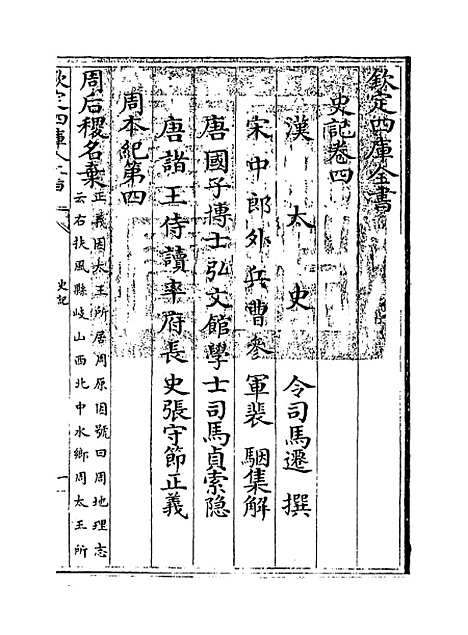 欽定四庫全書
史記卷四
漢太史令司馬遷撰
宋中郎外兵曹參軍裴駰集解
唐國子博士弘文館學士司馬貞索隱
唐諸王侍讀率府長史張守節正義
周本紀第四
周后稷名棄
正義因太王所居周原因號曰周地理志
云右扶風縣岐山西北中水鄉周太王所
欽定四庫全書
史記
一